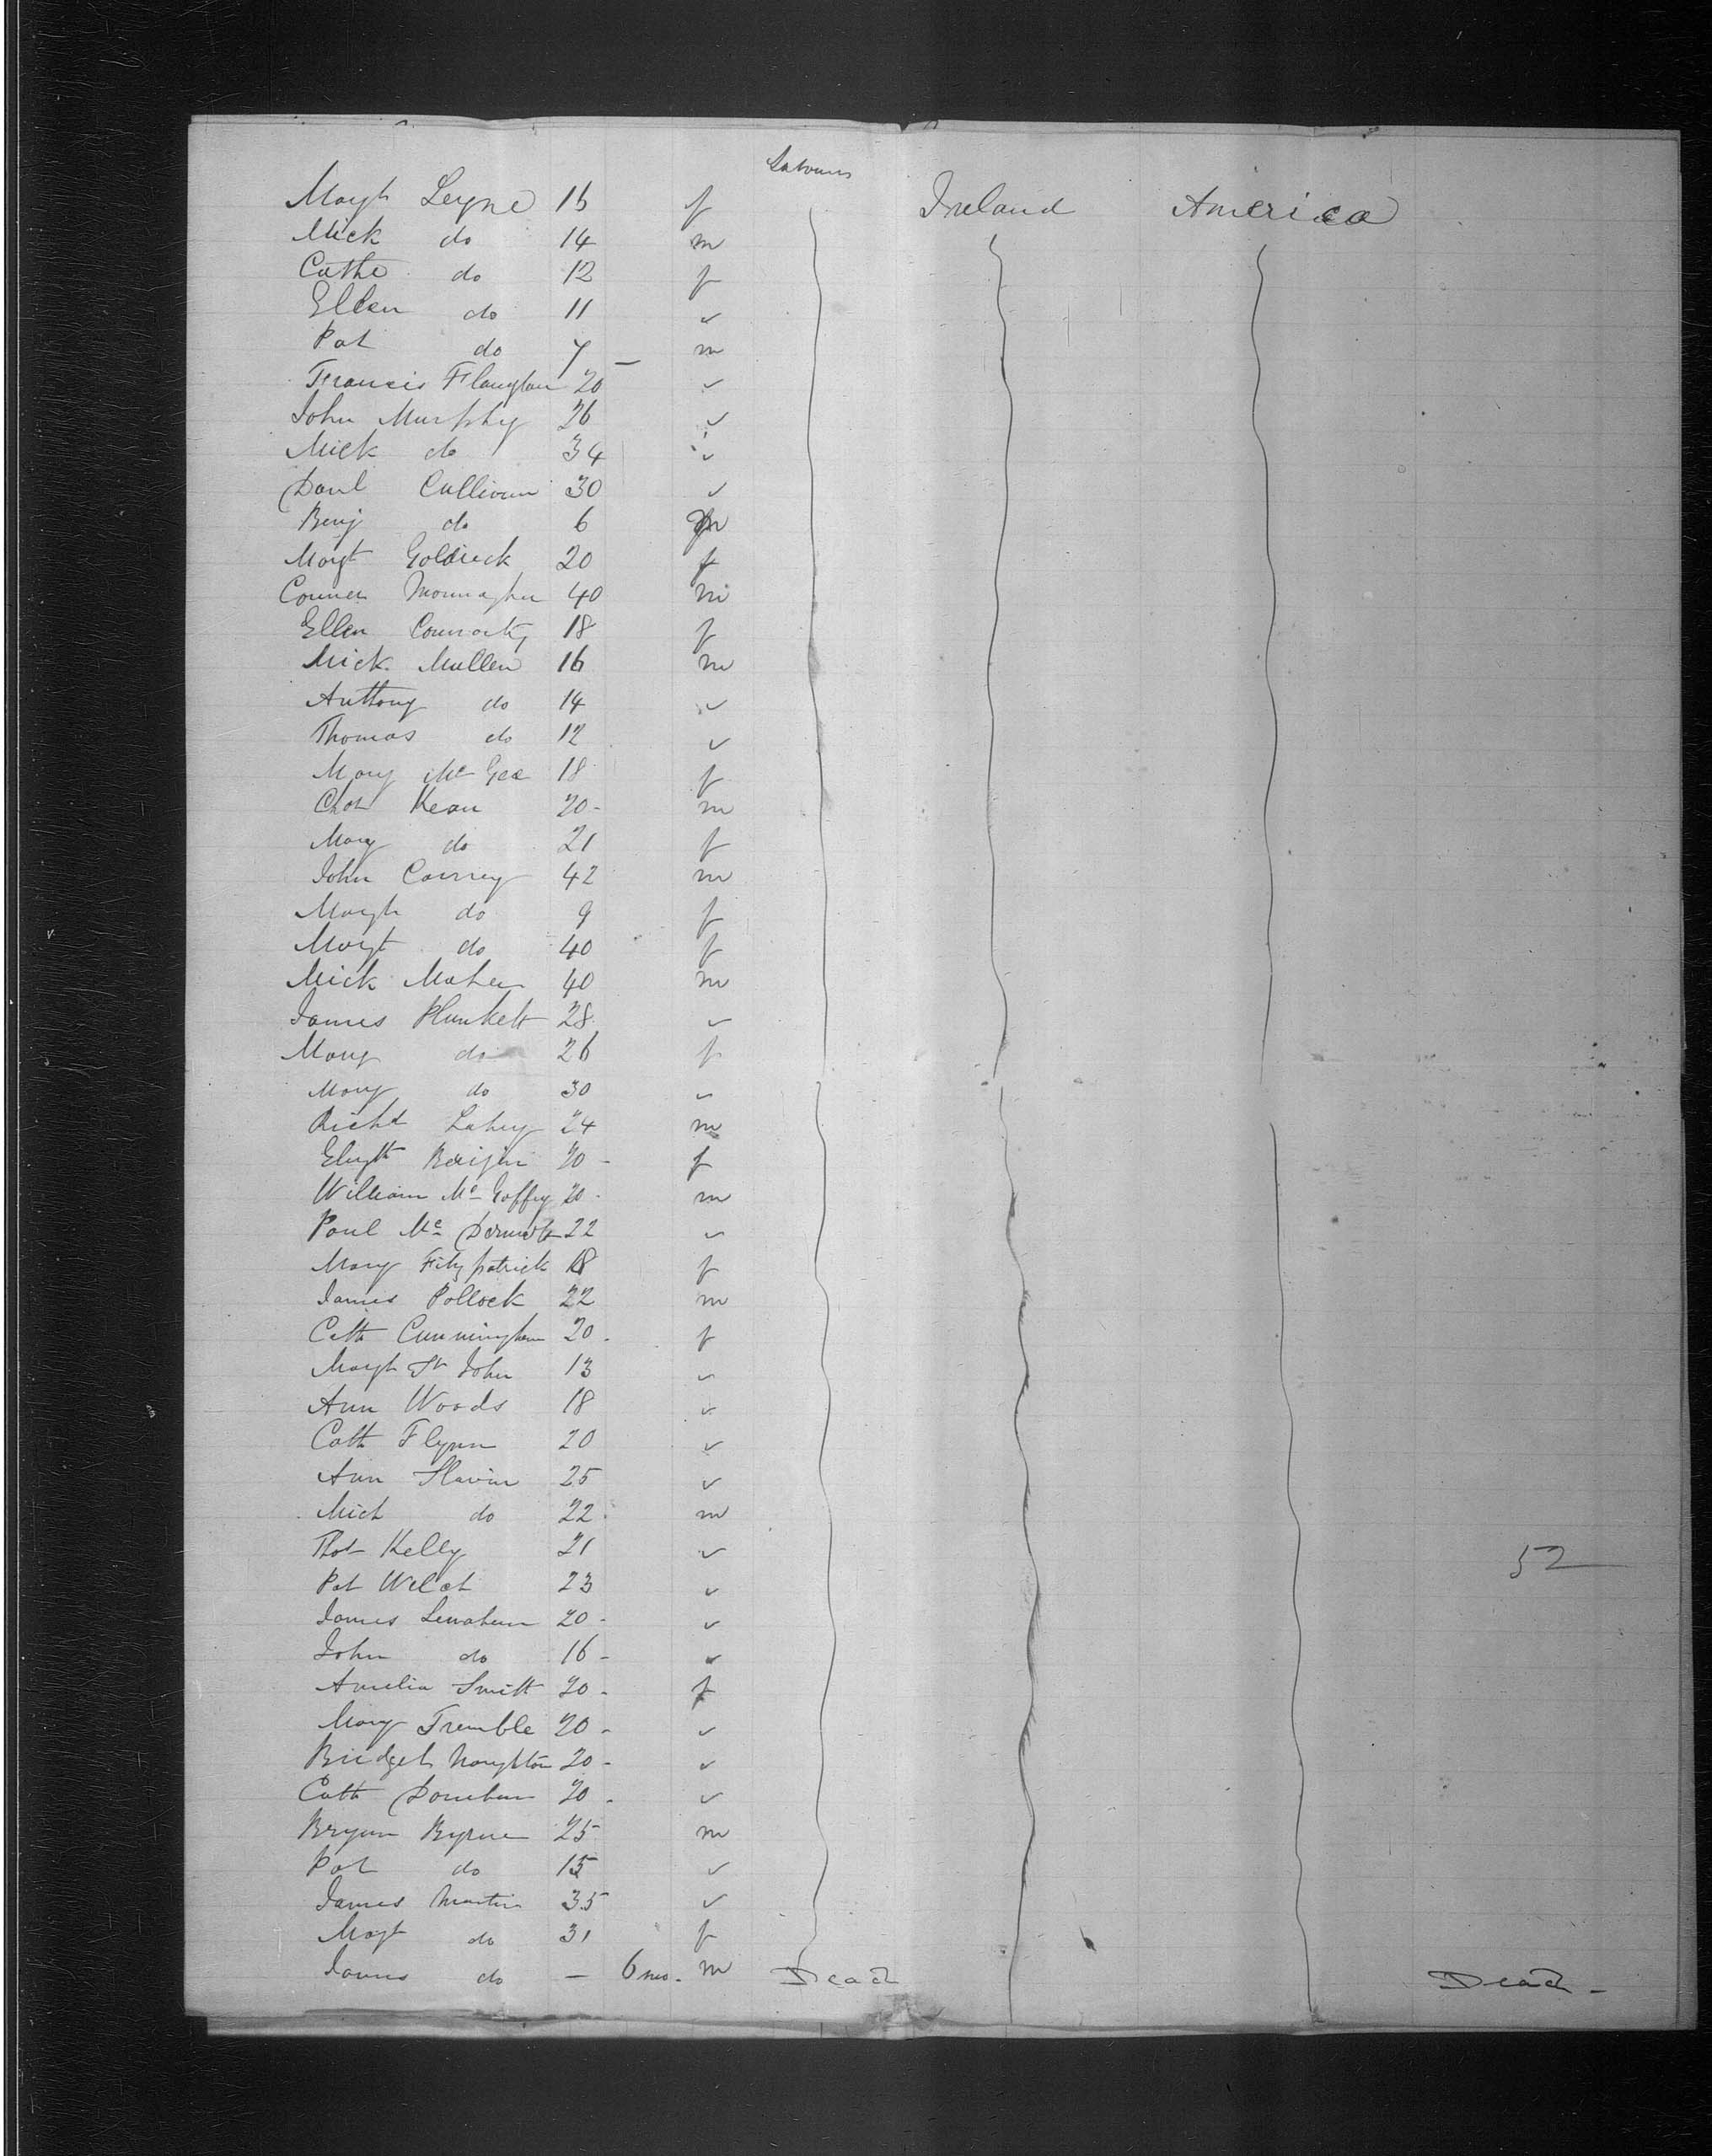 Labourer
Margt Leyne 16 f Ireland America
Mick do 14 m
Cathe do 12 f
Ellen do 11 ✓
Pat do 7 — m
Francis 20 ✓
John Murphy 26 ✓
Mick do 34 ✓
Danl 30 ✓
Benj do 6 m
Margt 20 f
40 m
Ellen 18 f
Mick Mullen 16 m
Anthony do 14 ✓
Thomas do 12 ✓
Mary Mc Gee 18 f
Kean 20 - m
Mary do 21 f
John 42 m
Margt do 9 f
Margt do 40 f
Mick Maher 40 m
James Plunkett 28 ✓
Mary do 26 f
Mary do 30 ✓
Richd Lahey 24 m
20 - f
William Mc 20 - m
Paul Mc Dermott 22 ✓
Mary Fitzpatrick 18 f
James Pollock 22 m
Cath Cunningham 20 - f
Margt St John 13 ✓
Ann Woods 18 ✓
Cath Flynn 20 ✓
Ann Slavin 25 ✓
Mich do 22 - m
Thos Kelly 21 ✓ 52
Pat Welch 23 ✓
James Lenahan 20 - ✓
John do 16 - ✓
Amelia Smith 20 - f
Mary Tremble 20 - ✓
Bridget Naughton 20 - ✓
Cath 20 - ✓
Bryan Byrne 25 m
Pat do 15 ✓
James Martin 35 ✓
Margt do 31 f
James do — 6 mo. m Dead Dead -